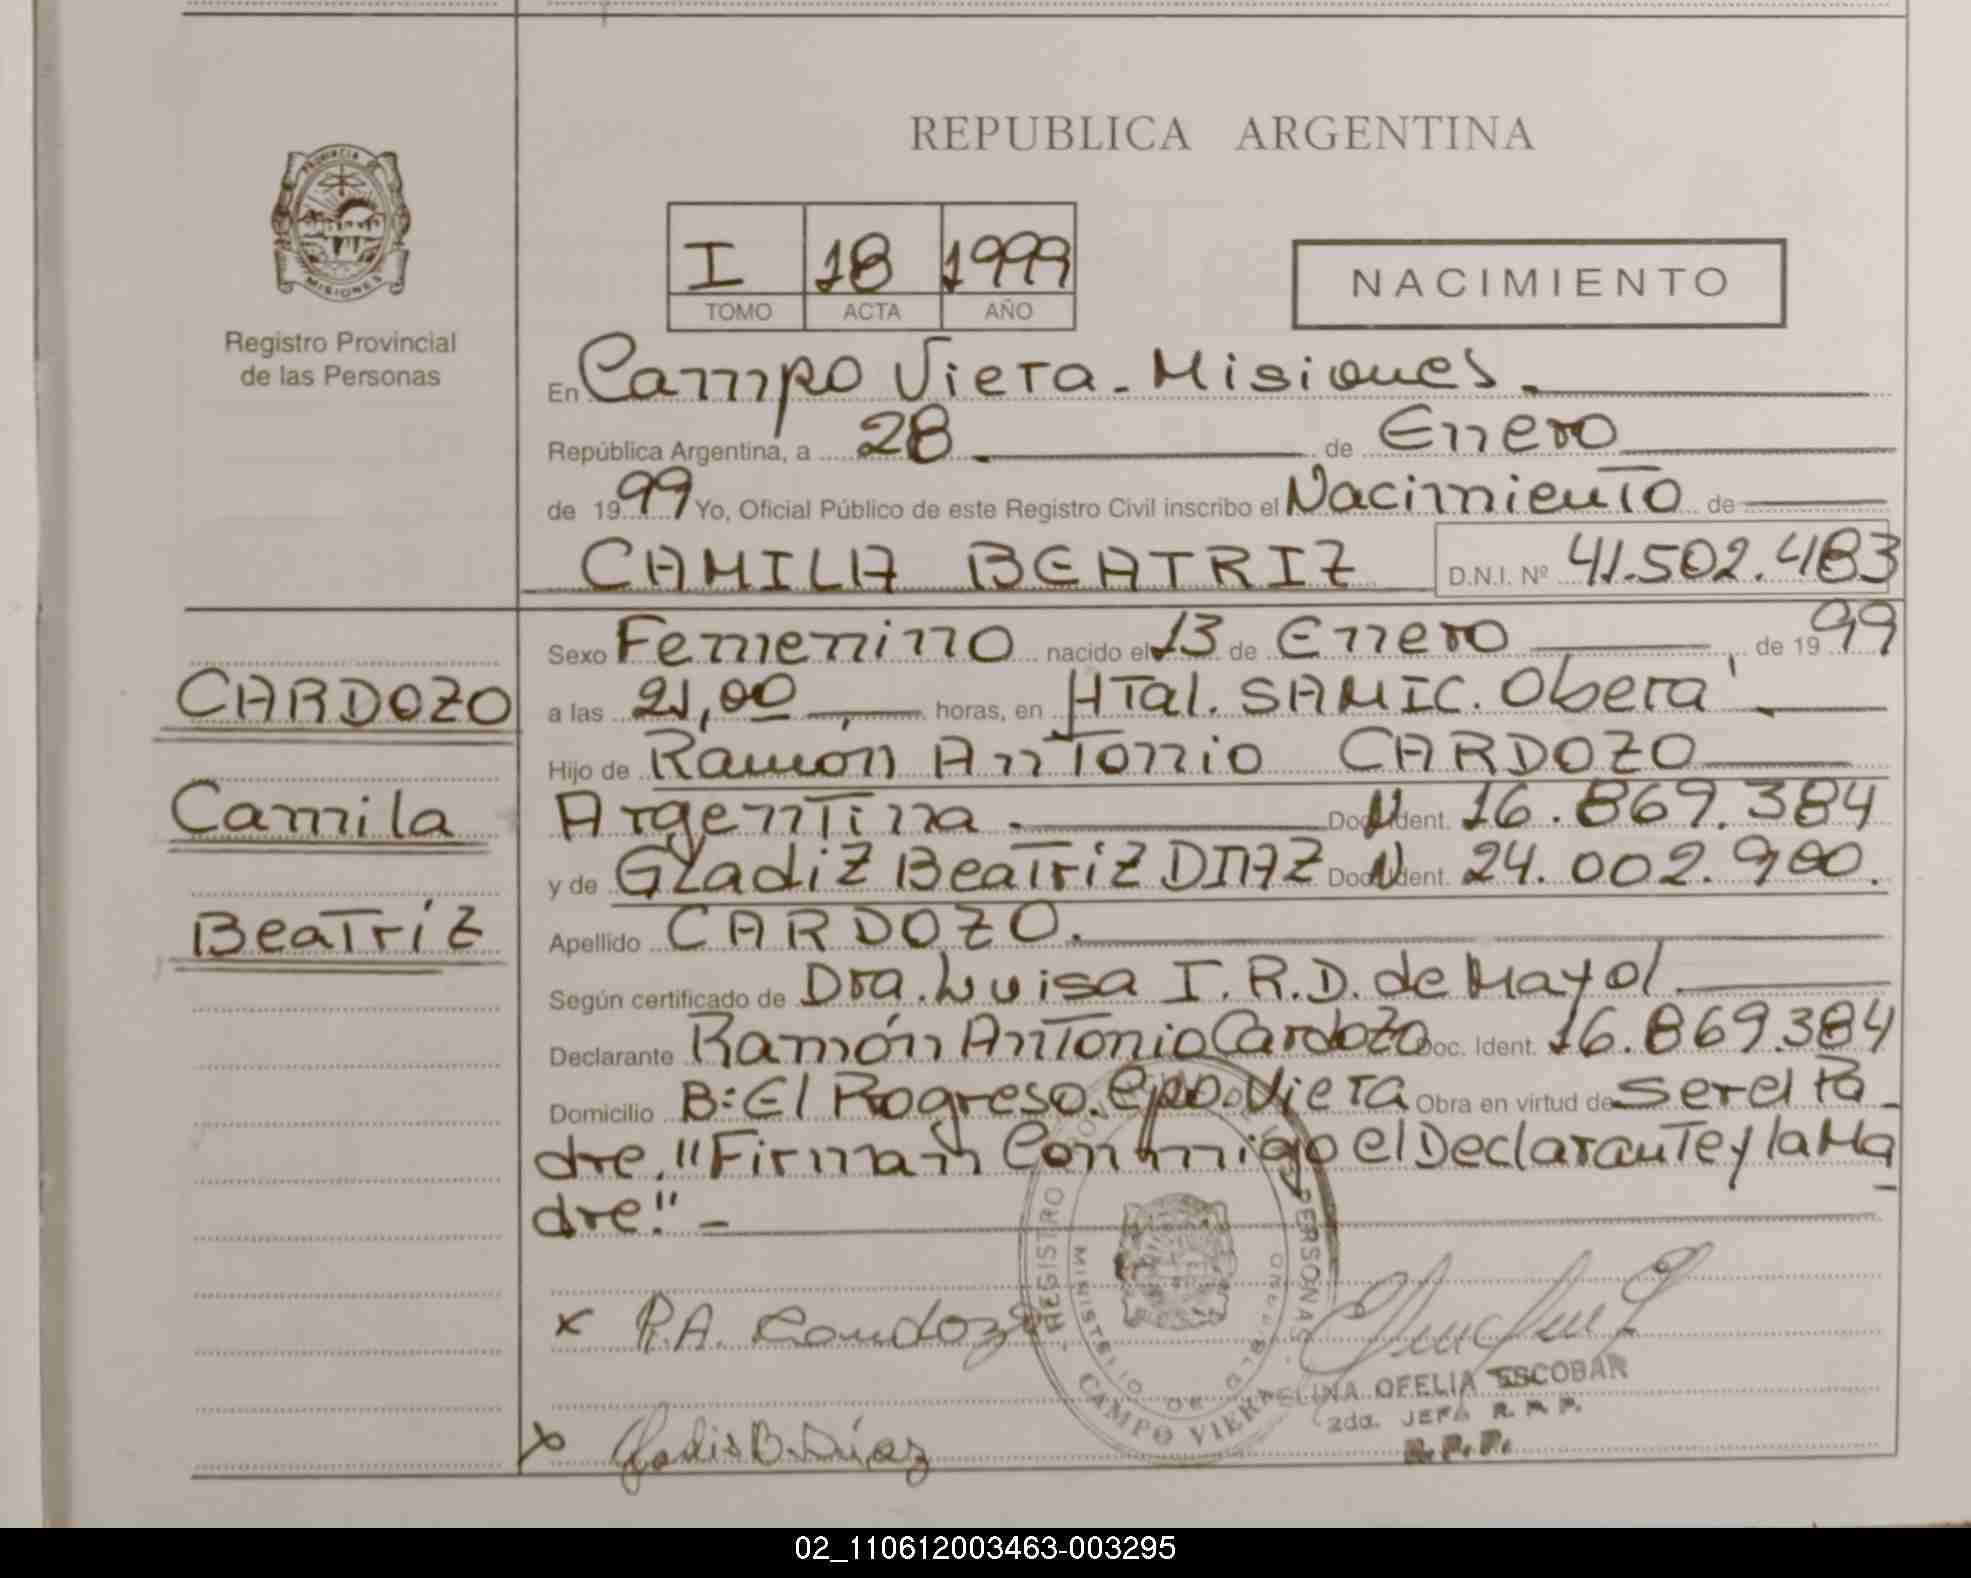 REPUBLICA ARGENTINA
PROVINCIA
MISIONES
Registro Provincial
de las Personas
I 18 1999
TOMO ACTA AÑO
NACIMIENTO
En Campo Viera - Misiones.
República Argentina, a 28 de Enero
de 1999 Yo, Oficial Público de este Registro Civil inscribo el Nacimiento de
CAMILA BEATRIZ D.N.I. Nº 41.502.483
CARDOZO
Camila
Beatriz
Sexo Femenino nacido el 13 de Enero de 1999
a las 21,00 horas, en HTal. SAMIC. Oberá
Hijo de Ramón Antonio CARDOZO
Argentina Doc. Ident. 16.869.384
y de GLadiz Beatriz DIAZ Doc. Ident. 24.002.900.
Apellido CARDOZO.
Según certificado de Dra. Luisa I.R.D. de Mayol
Declarante Ramón Antonio Cardozo Doc. Ident. 16.869.384
Domicilio B: El Progreso. Cpo. Viera Obra en virtud de ser el Pa-
dre. "Firman Conmigo el Declarante y la Ma-
dre." -
x R.A. Cardozo
x Gladis B. Díaz
REGISTRO PERSONAS
MINISTERIO DE GOB
CAMPO VIERA
ELINA OFELIA ESCOBAR
2da. JEFA R.P.P.
R.P.P.
02_110612003463-003295